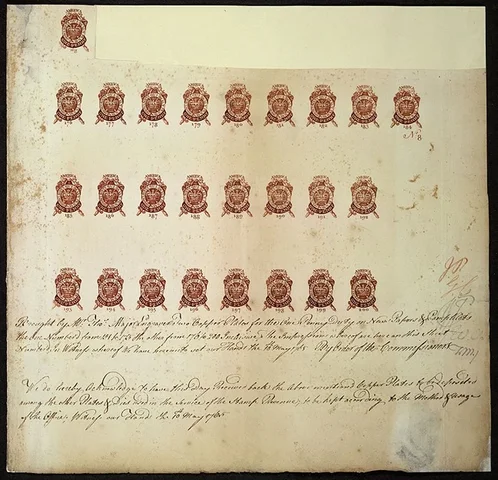 AMERICA
176 177 178 179 180 181 182 183 184
N. 8
185 186 187 188 189 190 191 192
193 194 195 196 197 198 199 200
Brought by Mr. Thos. Major Engraver Two Copper Plates for the One Penny Duty on News Papers & Pamphlets
the One Number'd from to 175 the other from 176 to 200 Inclusive, The Impression whereof are upon this Sheet
Number'd, in Witness whereof We have hereunto set our Hands the 10 May 1765 By Order of the Commissioners
We do hereby Acknowledge to have this Day Received back the above mentioned Copper Plates to be deposited
among the other Plates & Dies used in the Service of the Stamp Revenue, to be kept according to the Method & Usage
of the Office, Witness our Hands the 10 May 1765